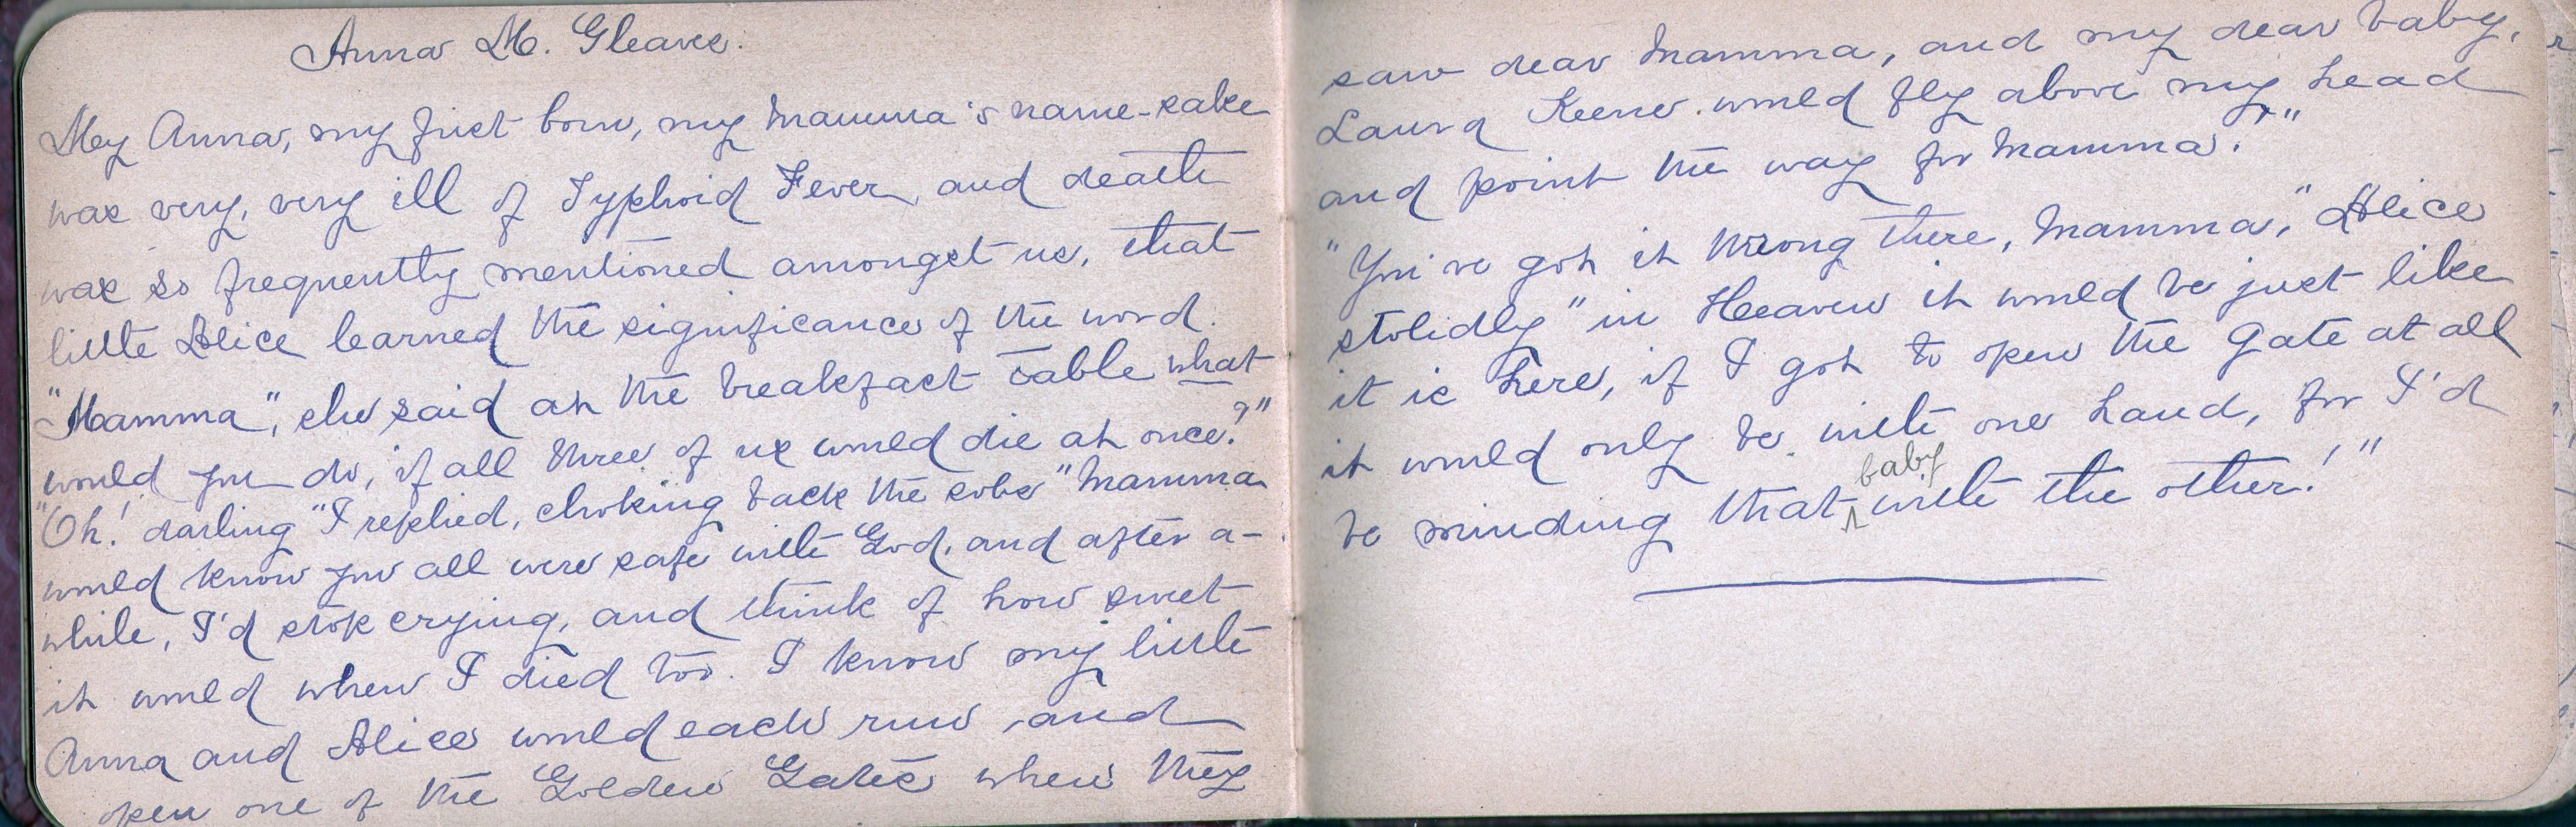 Anna M. Gleaves.
My Anna, my first born, my Mamma's name-sake
was very, very ill of Typhoid Fever, and death
was so frequently mentioned amongst us, that
little Alice learned the significance of the word.
"Mamma", she said at the breakfast table what
would you do, if all three of us would die at once?"
"Oh! darling "I replied, choking back the sobs "Mamma
would know you all were safe with God, and after a-
while, I'd stop crying, and think of how sweet
it would when I died too. I know my little
Anna and Alice would each run and
open one of the Golden Gates when they
saw dear Mamma, and my dear baby,
Laura Keene would fly above my head
and point the way for Mamma."
"You've got it wrong there, Mamma," Alice
stolidly "in Heaven it would be just like
it is here, if I got to open the gate at all
it would only be with one hand, for I'd
be minding that baby with the other!"